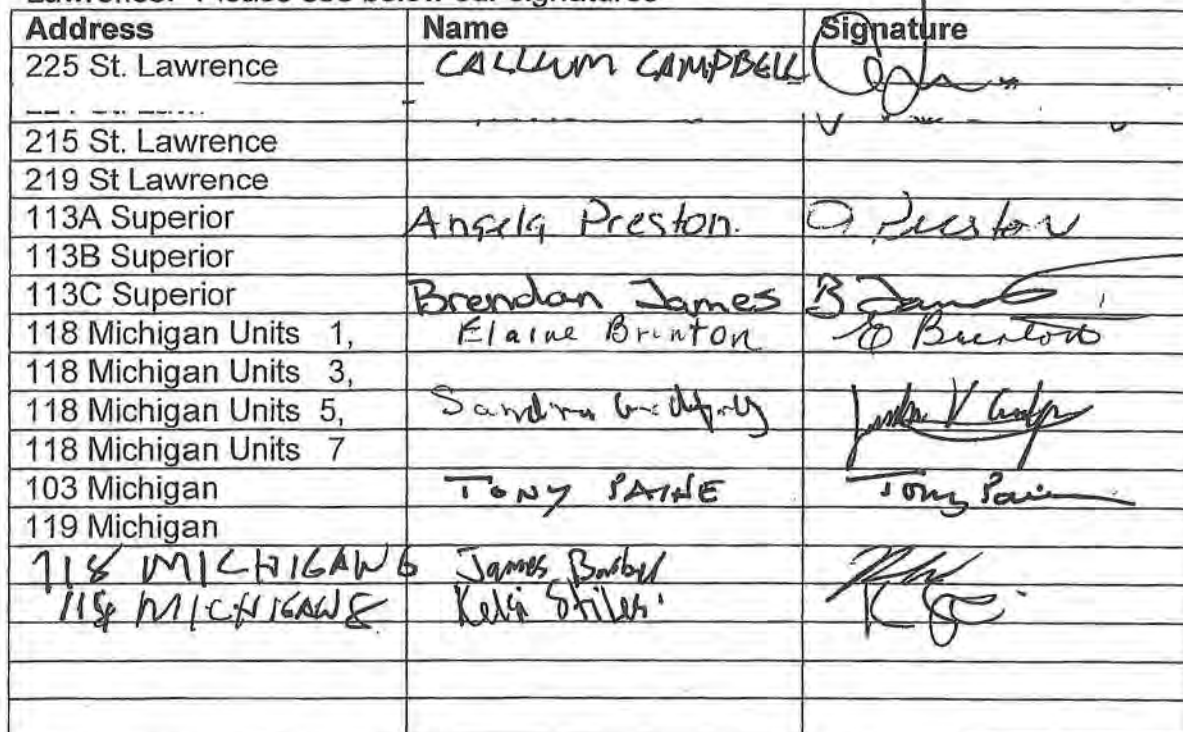 Address Name Signature
225 St. Lawrence CALLUM CAMPBELL
215 St. Lawrence
219 St Lawrence
113A Superior Angela Preston. A Preston
113B Superior
113C Superior Brendan James B James
118 Michigan Units 1, Elaine Brunton E Brunton
118 Michigan Units 3,
118 Michigan Units 5, Sandra
118 Michigan Units 7
103 Michigan TONY PAINE Tony Paine
119 Michigan
118 MICHIGAN 6 James
118 MICHIGAN 8 Stiles